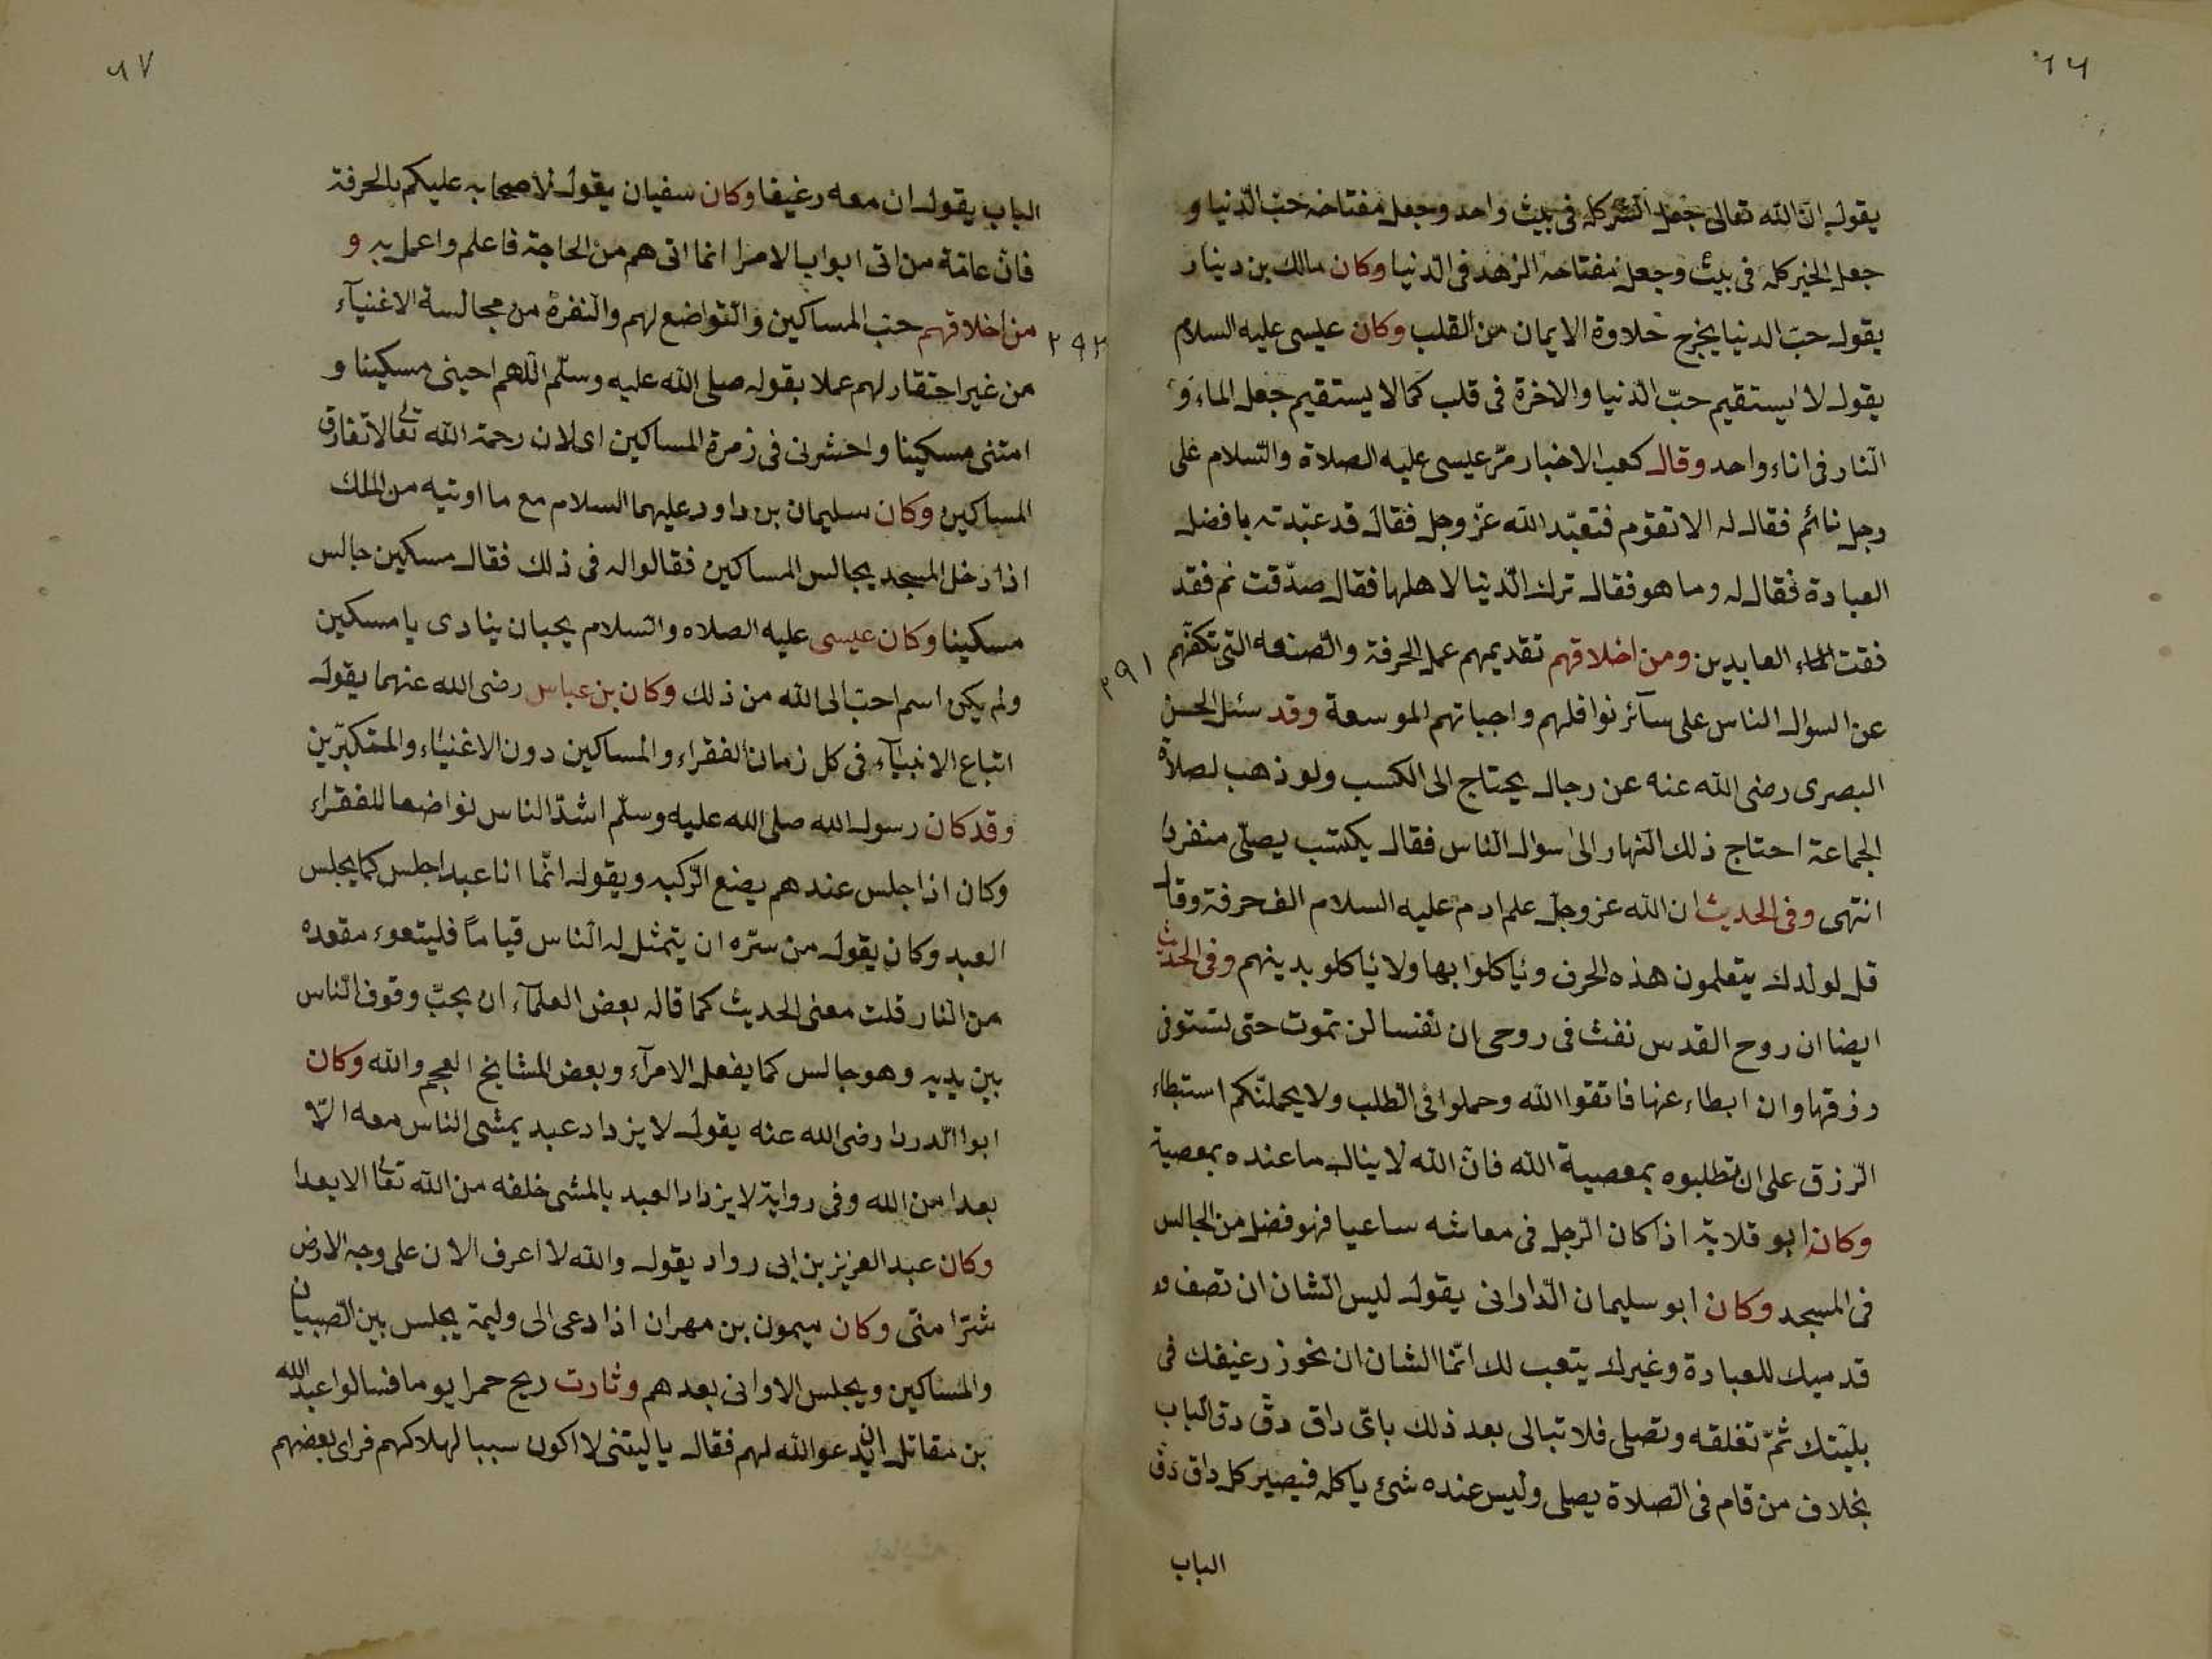 ٦٦
يقول ان الله تعالى جعل الشر كله في بيت واحد وجعل مفتاحه حب الدنيا و
جعل الخير كله في بيت وجعل مفتاحه الزهد في الدنيا وكان مالك بن دينار
يقول حب الدنيا يخرج حلاوة الايمان من القلب وكان عيسى عليه السلام
يقول لا يستقيم حبّ الدنيا والاخرة في قلب كما لا يستقيم جعل الماء و
النار في اناء واحد وقال كعب الاخبار مرّ عيسى عليه الصلاة والسلام على
رجل نائم فقال له الا تقوم فتعبّد الله عز وجل فقال قد عبّدته بافضل
العبادة فقال له وما هو فقال ترك الدنيا لاهلها فقال صدّقت نم فقد
فقت العابدين ومن اخلاقهم تقديمهم عمل الحرفة والصنعه التي تكفّهم
٢٩١
عن السوال الناس على سآئر نوافلهم واجباتهم الموسعة وقد سئل الحسن
البصرى رضى الله عنه عن رجال يحتاج الى الكسب ولو ذهب لصلاة
الجماعة احتاج ذلك النهار الى سوال الناس فقال يكتسب يصلّى منفردا
انتهى وفى الحديث ان الله عز وجلّ علم ادم عليه السلام الف حرفة وقال
قل لولدك يتعلمون هذه الحرف وياكلوا بها ولا ياكلو بدينهم وفى الحديث
ايضا ان روح القدس نفث فى روحى ان نفسا لن تموت حتى تستوفى
رزقها وان ابطاء عنها فاتقوا الله وحملوا فى الطلب ولا يحملنّكم استبطاء
الرزق على ان تطلبوه بمعصية الله فانّ الله لا ينال ما عنده بمعصية
وكان ابو قلابة اذا كان الرجل فى معاشه ساعيا فهو فضل من الجالس
فى المسجد وكان ابو سليمان الدارانى يقول ليس الشان ان تصف
قدميك للعبادة وغيرك يتعب لك انّما الشان ان نحوز رغيفك فى
بليتك ثمّ تغلقه وتصلى فلا تبالى بعد ذلك باىّ داق دقّ دق الباب
بخلاف من قام فى الصلاة يصلى وليس عنده شئ ياكله فيصير كل داق دق
الباب
٦٧
الباب يقول ان معه رغيفا وكان سفيان يقول لاصحابه عليكم بالحرفة
فانّ عامّة من اتى ابواب الامرا انما اتى هم من الحاجة فاعلم واعمل به و
من اخلاقهم حبّ المساكين والتواضع لهم والنفرة من مجالسة الاغنيآء
٢٩٢
من غير احتقار لهم عملا بقوله صلى الله عليه وسلّم اللهم احينى مسكينا و
امتنى مسكينا واحشرنى فى زمرة المساكين اى لان رحمة الله تعالى لا تفارق
المساكين وكان سليمان بن داود عليهما السلام مع ما اوتيه من الملك
اذا دخل المسجد يجالس المساكين فقالوا له فى ذلك فقال مسكين جالس
مسكينا وكان عيسى عليه الصلاه والسلام يحب ان ينادى يا مسكين
ولم يكن اسم احبّ الى الله من ذلك وكان بن عباس رضى الله عنهما يقول
اتباع الانبيآء فى كل زمان الفقراء والمساكين دون الاغنياء والمتكبّرين
وقد كان رسول الله صلى الله عليه وسلّم اشدّ الناس تواضعا للفقراء
وكان اذا جلس عندهم يضع الرّكبه ويقول انّما انا عبد اجلس كما يجلس
العبد وكان يقول من سرّه ان يتمثل له الناس قياماً فليتبوء مقعده
من النار قلت معنى الحديث كما قاله بعض العلمآء ان يحبّ وقوف الناس
بين يديه وهو جالس كما يفعل الامرآء وبعض المشايخ العجم والله وكان
ابوا الدردا رضى الله عنه يقول لا يزداد عبد يمشى الناس معه الاّ
بعدا من الله وفى رواية لا يزداد العبد بالمشى خلفه من الله تعالى الا بعدا
وكان عبد العزيز بن ابى رواد يقول والله لا اعرف الان على وجه الارض
شرّا منّى وكان ميمون بن مهران اذا دعى الى وليمة يجلس بين الصبيان
والمساكين ويجلس الاوانى بعدهم وثارت ريح حمرا يوما فسالوا عبد الله
بن مقاتل ان يدعو الله لهم فقال يا ليتنى لا اكون سببا لهلاكهم فراى بعضهم